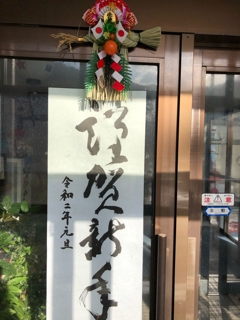 謹賀新年
令和二年元旦
注意